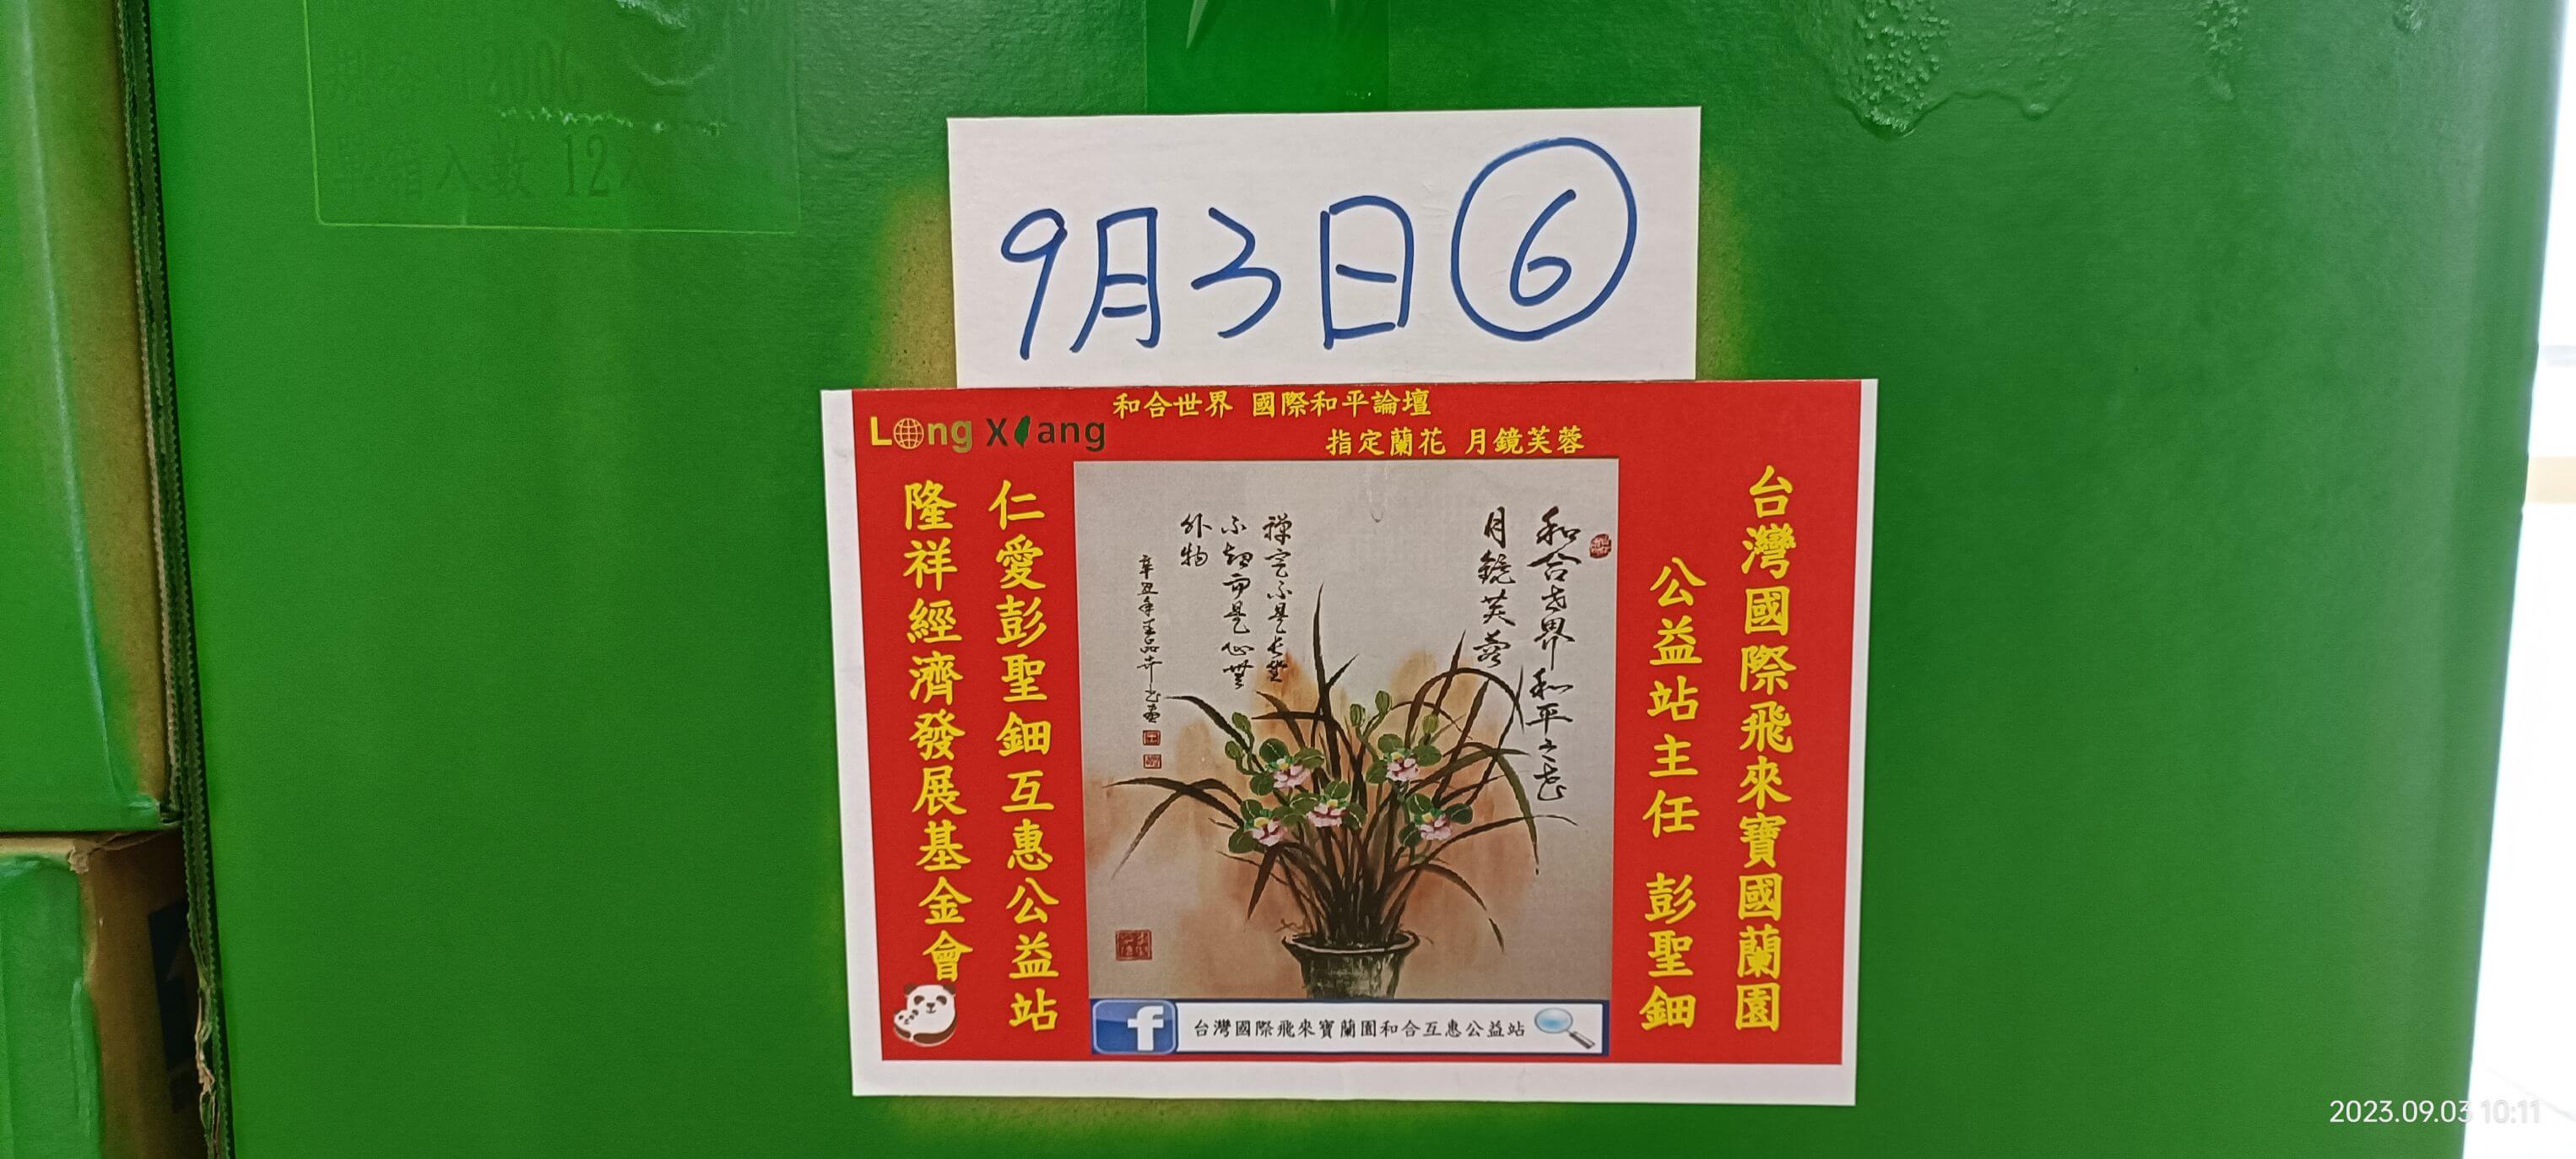 規格 1200G
單箱入數 12入
9月3日⑥
Long Xiang
和合世界 國際和平論壇
指定蘭花 月鏡芙蓉
台灣國際飛來寶國蘭園
公益站主任 彭聖鈿
和合世界和平之花
月鏡芙蓉
禪定不是長坐
不起而是心無
外物
辛丑年
仁愛彭聖鈿互惠公益站
隆祥經濟發展基金會
台灣國際飛來寶蘭園和合互惠公益站
2023.09.03 10:11